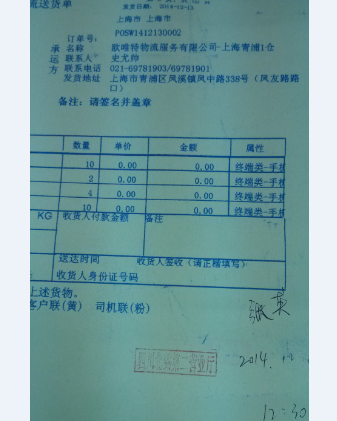 流送货单
发货日期: 2014-12-13
上海市 上海市
订单号: POSW1412130002
承 欧唯特物流服务有限公司-上海青浦1仓
运 联系人 史尤帅
方 联系电话 021-69781903/69781901
发货地址 上海市青浦区凤溪镇凤中路338号 (凤友路路口)
备注: 请签名并盖章
数量 单价 金额 属性
10 0.00 0.00 终端类-手机
2 0.00 0.00 终端类-手机
4 0.00 0.00 终端类-手机
10 0.00 0.00 终端类-手机
KG 收货人付款金额 备注
送达时间 收货人签收 (请正楷填写)
收货人身份证号码
上述货物。
客户联(黄) 司机联(粉)
张英
2014.12
12:30